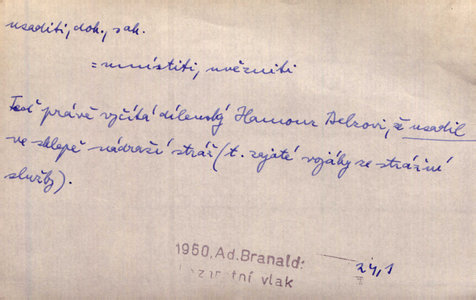 usaditi, dok., sak.
= umístiti, uvězniti
Teď právě vyčítá dílenský Hamouz Delzovi, ž usadil
ve sklepě nádraží stráž (t. zajaté vojáky ze strážní
služby).
1960, Ad. Branald:
Lazaretní vlak
24, 1